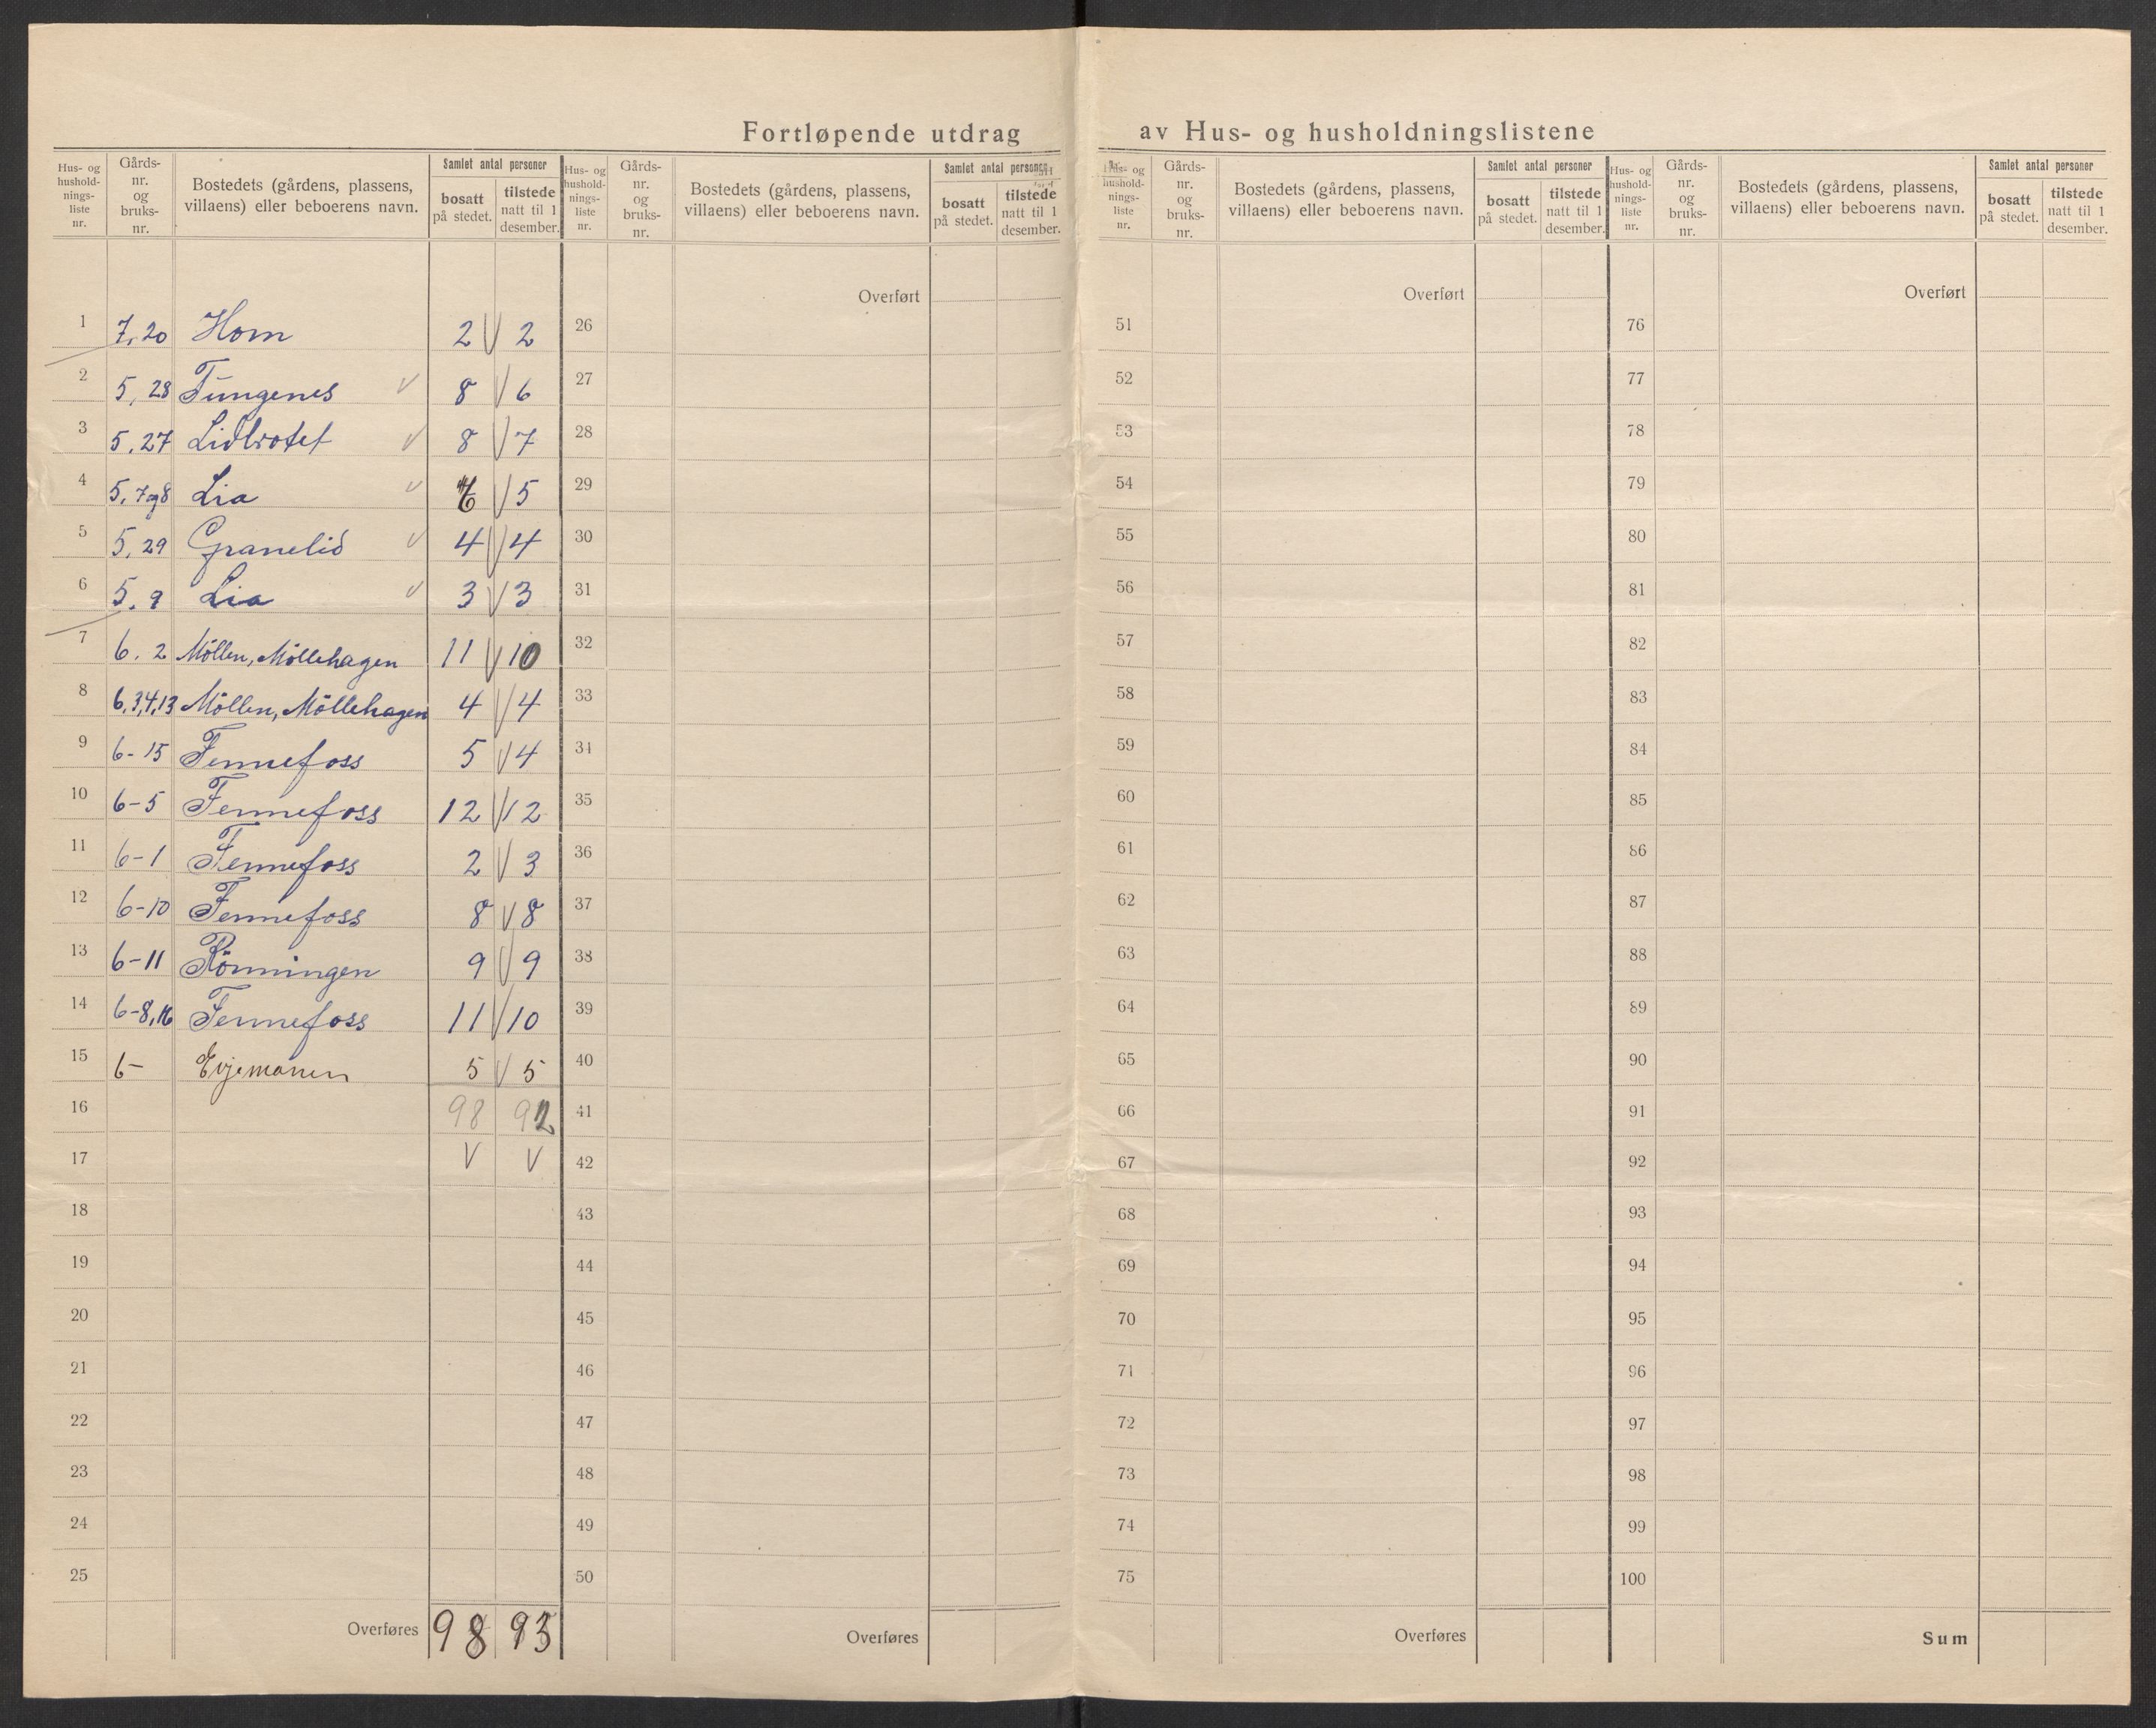 Fortløpende utdrag av Hus- og husholdningslistene
Hus- og hushold- nings- liste nr. | Gårds- nr. og bruks- nr. | Bostedets (gårdens, plassens, villaens) eller beboerens navn. | Samlet antal personer | bosatt på stedet. | tilstede natt til 1 desember.
Hus- og hushold- nings- liste nr. | Gårds- nr. og bruks- nr. | Bostedets (gårdens, plassens, villaens) eller beboerens navn. | Samlet antal personer | bosatt på stedet. | tilstede natt til 1 desember.
Hus- og hushold- nings- liste nr. | Gårds- nr. og bruks- nr. | Bostedets (gårdens, plassens, villaens) eller beboerens navn. | Samlet antal personer | bosatt på stedet. | tilstede natt til 1 desember.
Hus- og hushold- nings- liste nr. | Gårds- nr. og bruks- nr. | Bostedets (gårdens, plassens, villaens) eller beboerens navn. | Samlet antal personer | bosatt på stedet. | tilstede natt til 1 desember.
Overført Overført Overført
1 7,20 Horn 2 V 2 26 51 76
2 5,28 Tungenes V 8 V 6 27 52 77
3 5.27 Lidbrotet V 8 V 7 28 53 78
4 5,7og8 Lia V V 5 29 54 79
5 5,29 Granelid V 4 V 4 30 55 80
6 5.9 Lia V 3 V 3 31 56 81
7 6.2 Möllen, Möllehagen 11 V 10 32 57 82
8 6,3,4,13 Möllen, Möllehagen 4 V 4 33 58 83
9 6-15 Fennefoss 5 V 4 34 59 84
10 6-5 Fennefoss 12 V 12 35 60 85
11 6-1 Fennefoss 2 V 3 36 61 86
12 6-10 Fennefoss 8 V 8 37 62 87
13 6-11 Rönningen 9 V 9 38 63 88
14 6-8,16 Fennefoss 11 V 10 39 64 89
15 6- Evjemonen 5 V 5 40 65 90
16 98 92 41 66 91
17 V V 42 67 92
18 43 68 93
19 44 69 94
20 45 70 95
21 46 71 96
22 47 72 97
23 48 73 98
24 49 74 99
25 50 75 100
Overføres 98 93 Overføres Overføres Sum